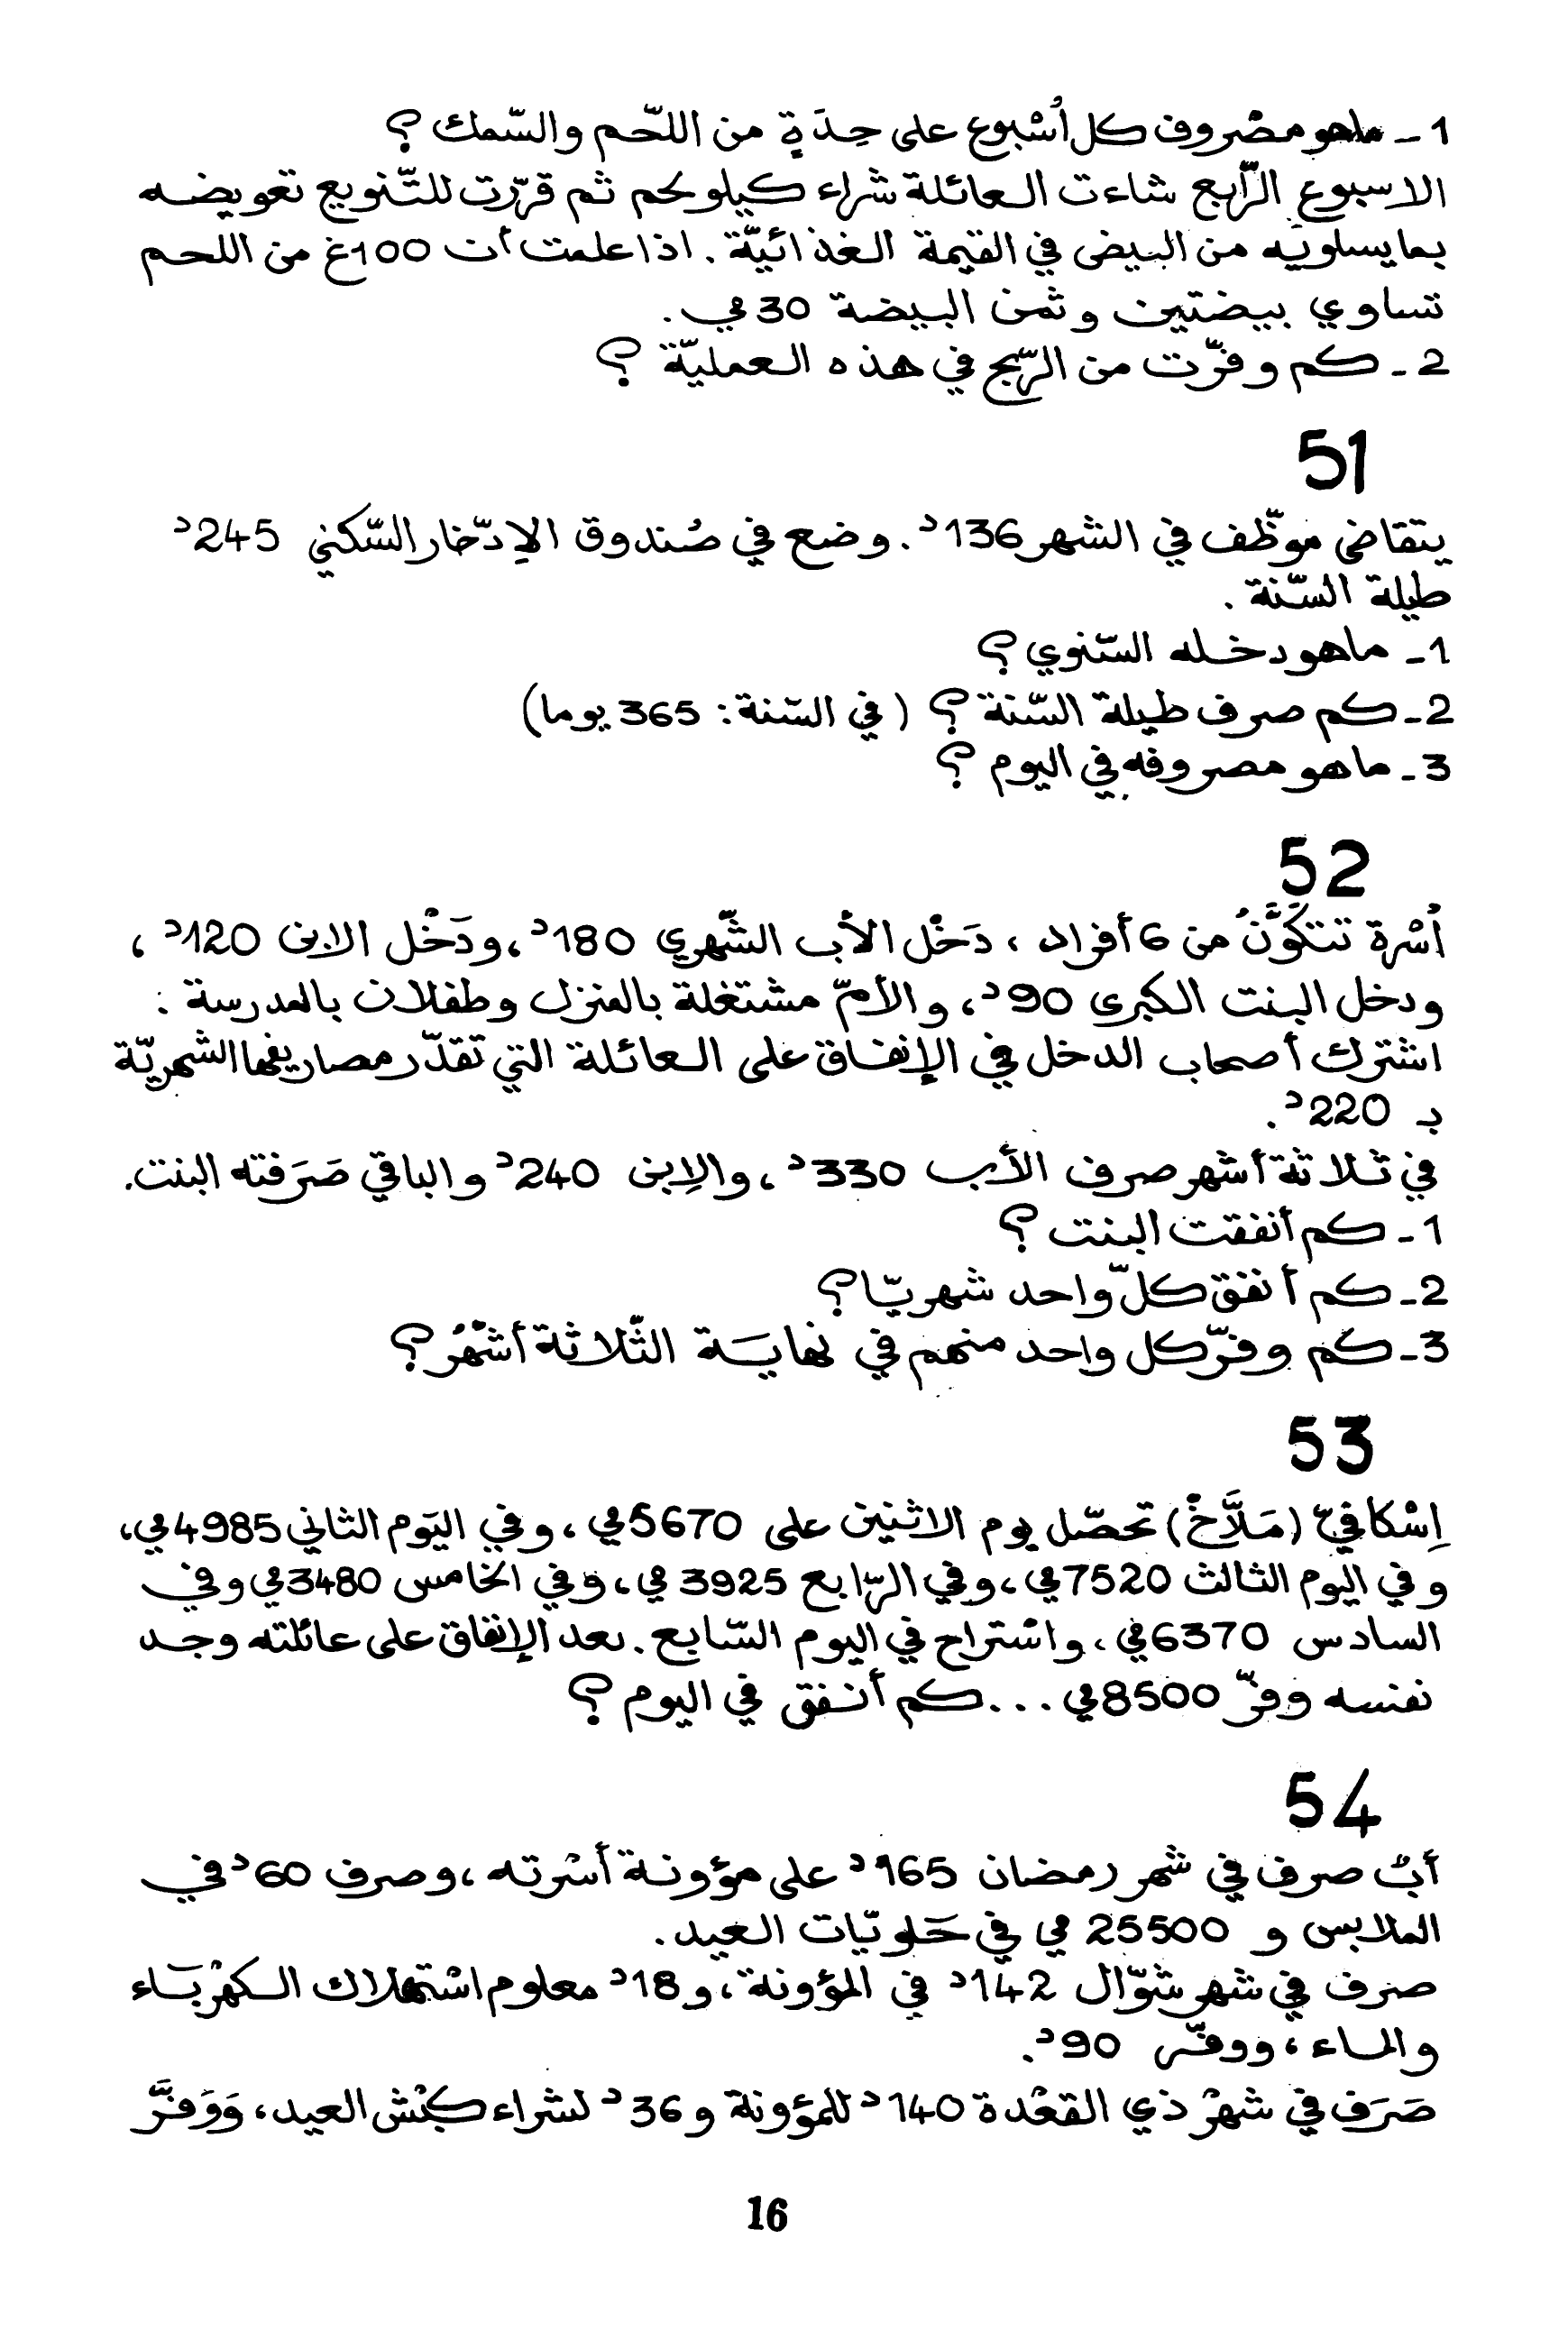 1 - ماهو مصْروف كل أُسْبوع على حِدَةٍ من اللّحم والسّمك ؟
الاسبوع الرّابع شاءت العائلة شراء كيلو لحم ثم قرّرت للتّنويع تعويضه
بما يساويه من البيض في القيمة الغذائيّة . اذا علمت أن 100غ من اللحم
تساوي بيضتين وثمن البيضة 30 مي .
2 - كم وفّرت من الرّبح في هذه العمليّة ؟
51
يتقاضى موظّف في الشهر 136د . وضع في صُندوق الإدّخار السّكني 245د
طيلة السّنة .
1 - ماهو دخله السّنوي ؟
2 - كم صرف طيلة السّنة ؟ ( في السّنة : 365 يوما )
3 - ماهو مصروفه في اليوم ؟
52
أُسْرة تتكَوَّنُ من 6 أفراد ، دَخْل الأب الشّهري 180د ، ودَخْل الابن 120د ،
ودخل البنت الكبرى 90د ، والأمّ مشتغلة بالمنزل وطفلان بالمدرسة :
اشترك أصحاب الدخل في الإنفاق على العائلة التي تقدّر مصاريفها الشهريّة
بـ 220د .
في ثلاثة أشهر صرف الأب 330د ، والإبن 240د والباقي صَرَفته البنت .
1 - كم أنفقت البنت ؟
2 - كم أنفق كلّ واحد شهريّا ؟
3 - كم وفّر كل واحد منهم في نهايَة الثّلاثة أشْهُر ؟
53
إِسْكافيّ (مَلَّاخْ) تحصّل يوم الاثنين على 5670مي ، وفي اليَوم الثاني 4985مي ،
وفي اليوم الثالث 7520مي ، وفي الرّابع 3925 مي ، وفي الخامس 3480مي وفي
السادس 6370مي ، واسْتراح في اليوم السّابع . بعد الإنفاق على عائلته وجد
نفسه وفّر 8500مي ... كم أنفق في اليوم ؟
54
أبٌ صرف في شهر رمضان 165د على مؤونة أسْرته ، وصرف 60د في
الملابس و 25500 مي في حَلويّات العيد .
صرف في شهر شوّال 142د في المؤونة ، و 18د معلوم اسْتهلاك الكهْرَباء
والماء ، ووفّر 90د .
صَرَف في شهْر ذي القعْدة 140د للمؤونة و 36د لشراء كبْش العيد ، وَوَفَّرَ
16